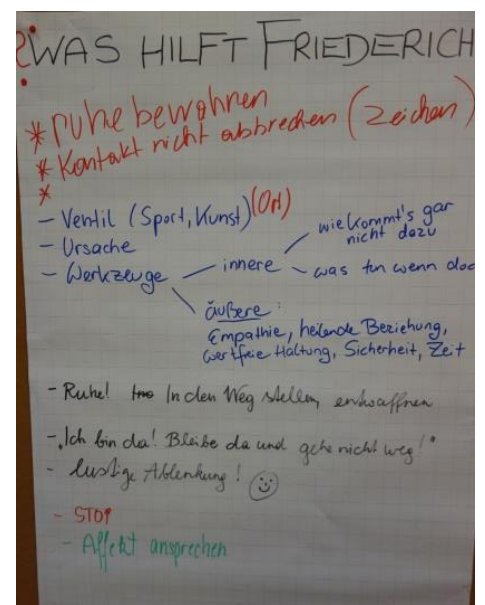 ?WAS HILFT FRIEDERICH
* Ruhe bewahren
* Kontakt nicht abbrechen (Zeichen)
*
- Ventil (Sport, Kunst) (Ort)
- Ursache
- Werkzeuge - innere - wie kommt's gar
nicht dazu
- was tun wenn doch
äußere:
Empathie, heilende Beziehung,
wertfreie Haltung, Sicherheit, Zeit
- Ruhe! In den Weg stellen, entwaffnen
- "Ich bin da! Bleibe da und gehe nicht weg!"
- lustige Ablenkung! ☺
- STOP
- Affekt ansprechen